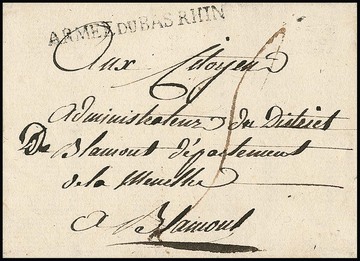 ARMÉE DU BAS RHIN
Aux Citoyens
Administrateurs du District
De Blamont département
de la Meurthe
A Blamont